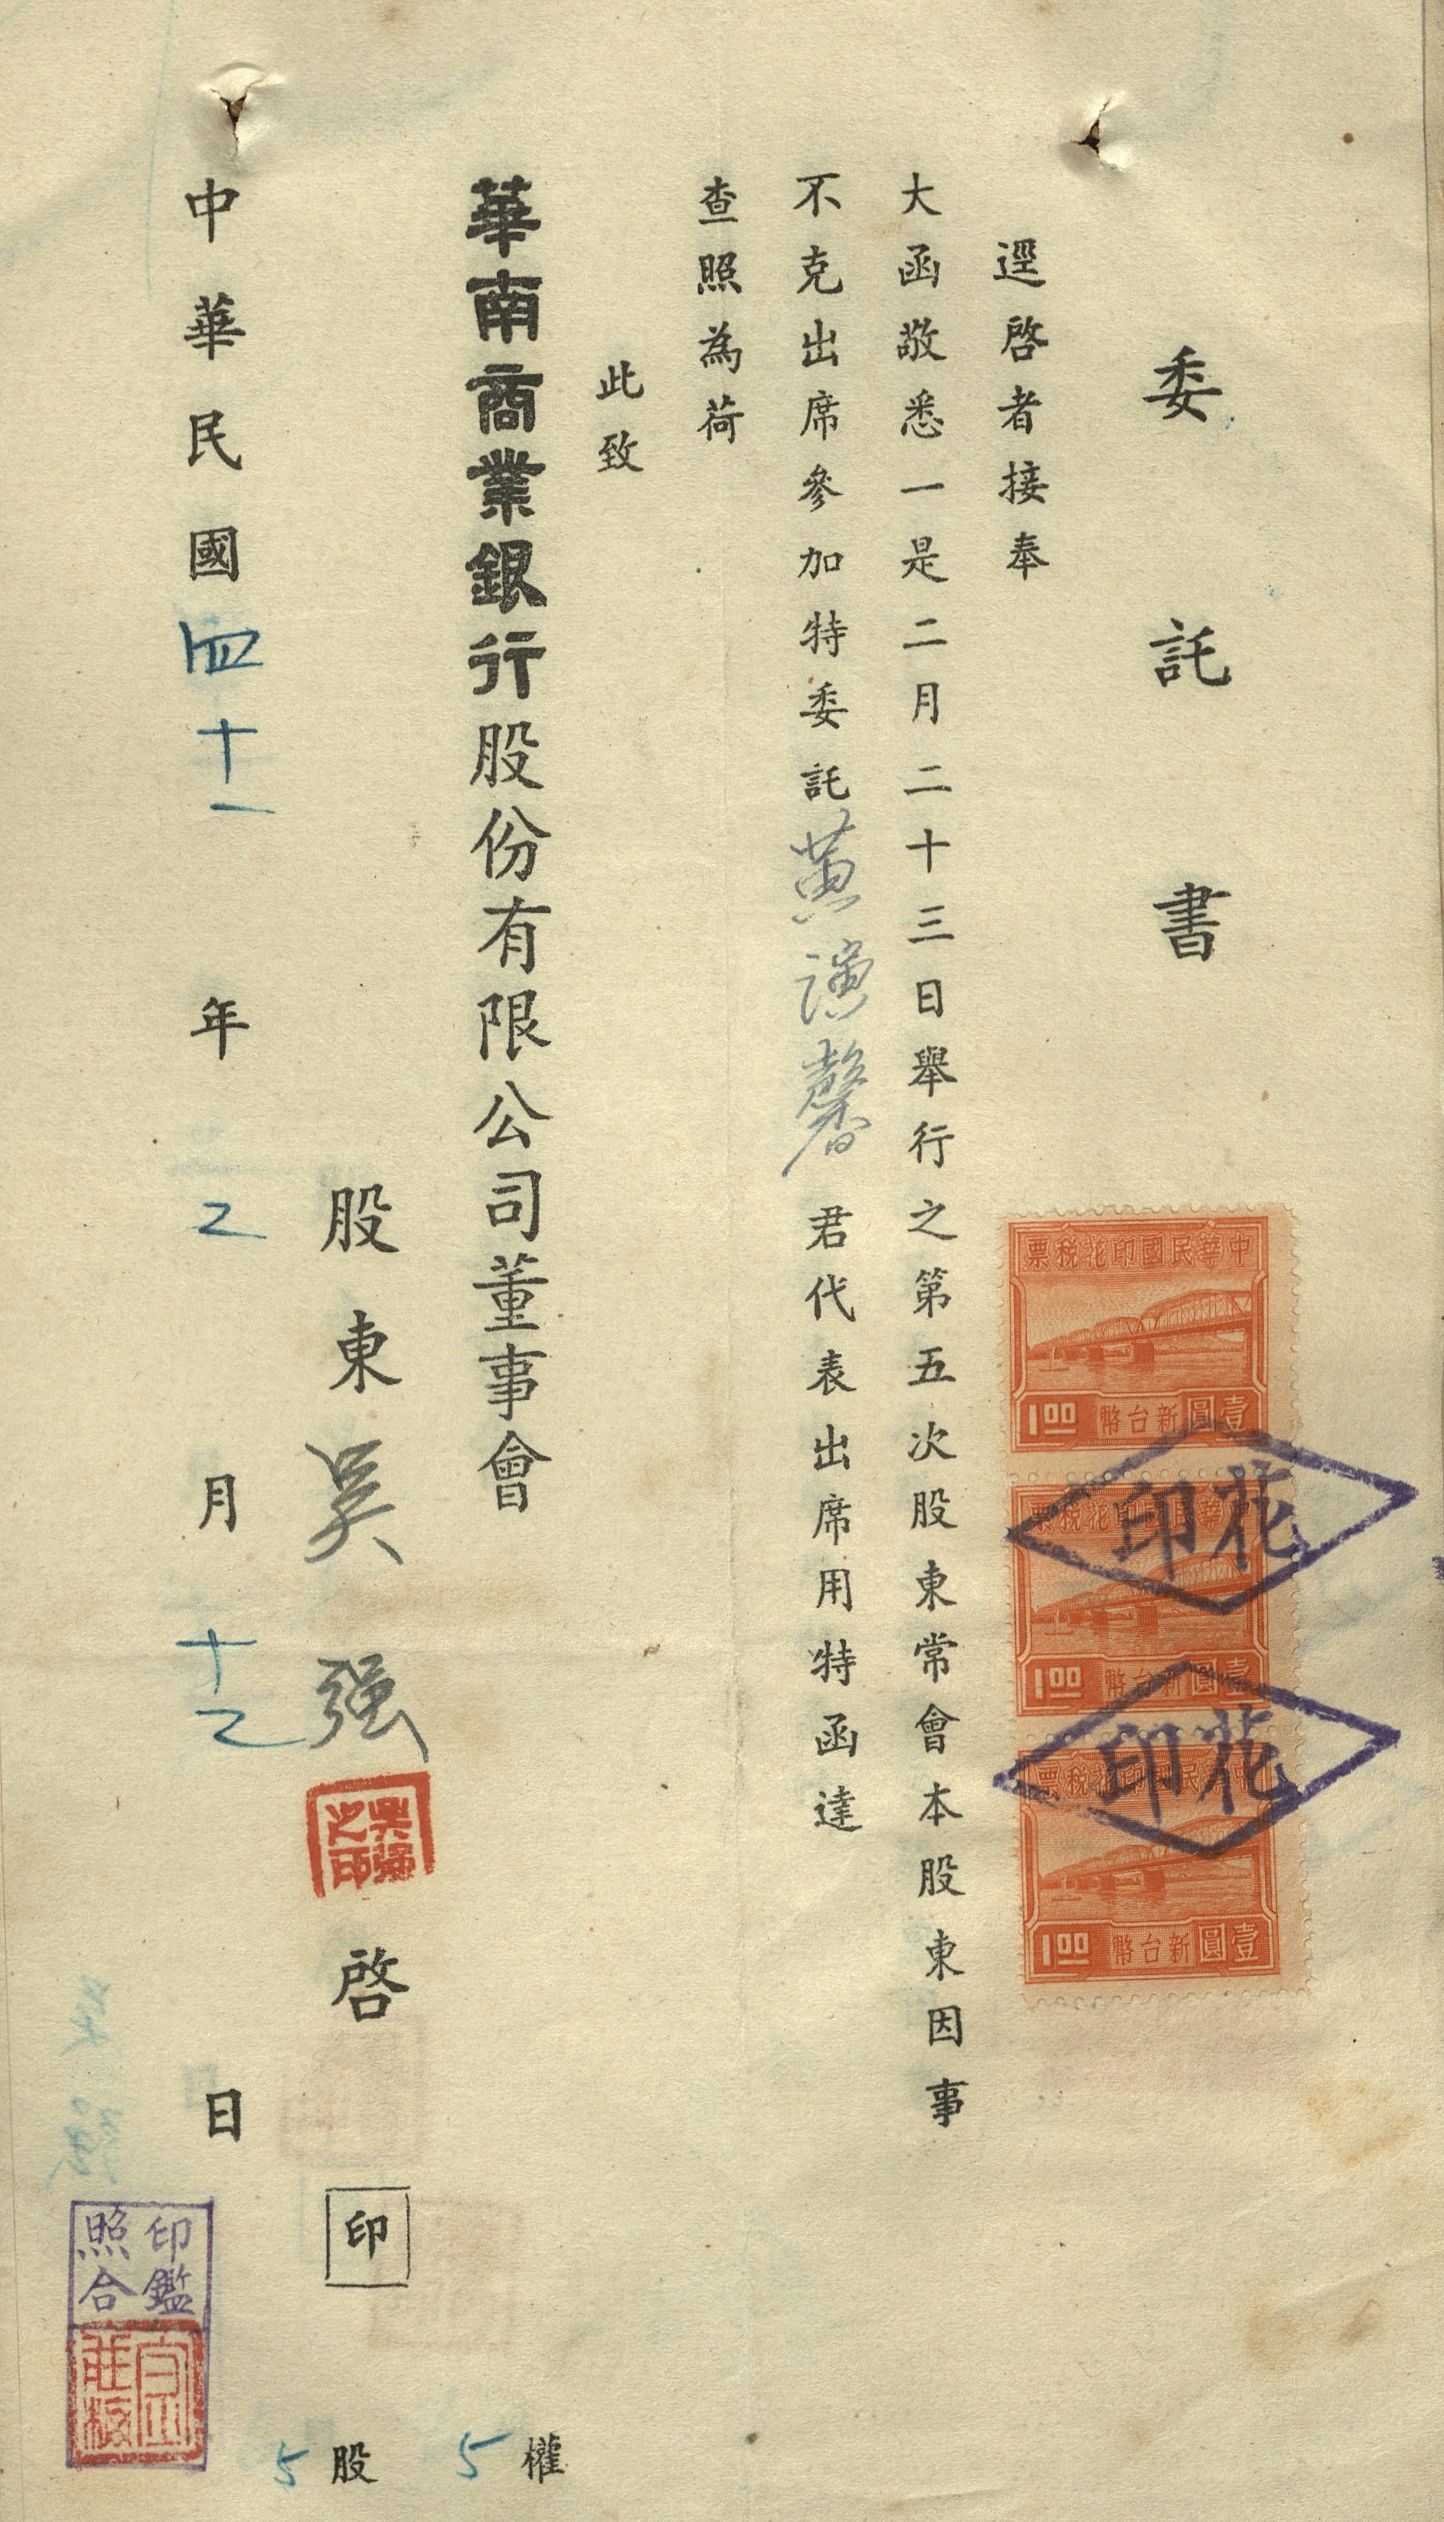 委託書
逕啓者接奉
大函敬悉一是二月二十三日舉行之第五次股東常會本股東因事
不克出席參加特委託黃演馨君代表出席用特函達
查照為荷
此致
華南商業銀行股份有限公司董事會
股東吳强啓印
中華民國四十一年二月十二日
5權
5股
吳强之印
印鑑照合
中華民國印花稅票
壹圓新台幣
1.00
中華民國印花稅票
壹圓新台幣
1.00
中華民國印花稅票
壹圓新台幣
1.00
花印
花印